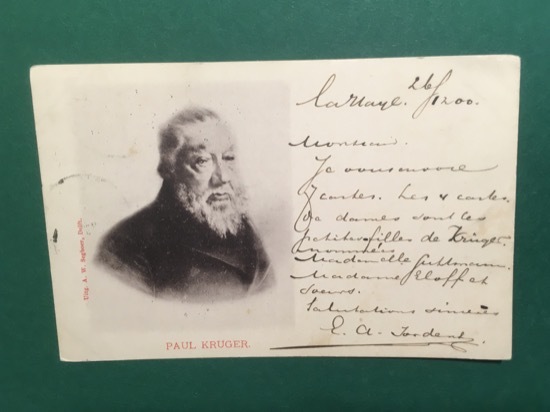 La Haye. 26/12 00.
Monsieur.
Je vous envoie
7 cartes. Les 4 cartes
de dames sont les
petites filles de Kruger.
nommées
Mademoiselle Guttmann.
Madame Eloff et
soeurs.
Salutations sincères
E. A.
Uitg. A. W. Segboer, Delft.
PAUL KRUGER.